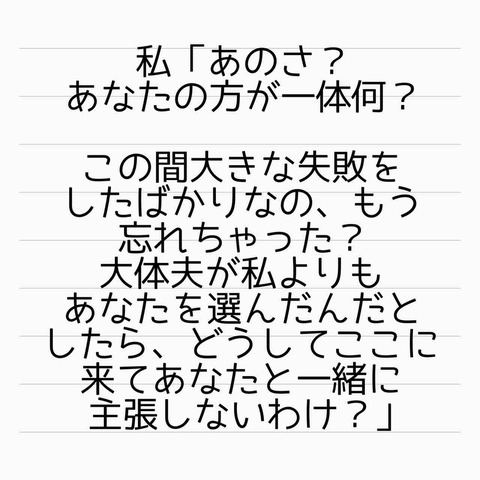 私「あのさ？
あなたの方が一体何？
この間大きな失敗を
したばかりなの、もう
忘れちゃった？
大体夫が私よりも
あなたを選んだんだと
したら、どうしてここに
来てあなたと一緒に
主張しないわけ？」